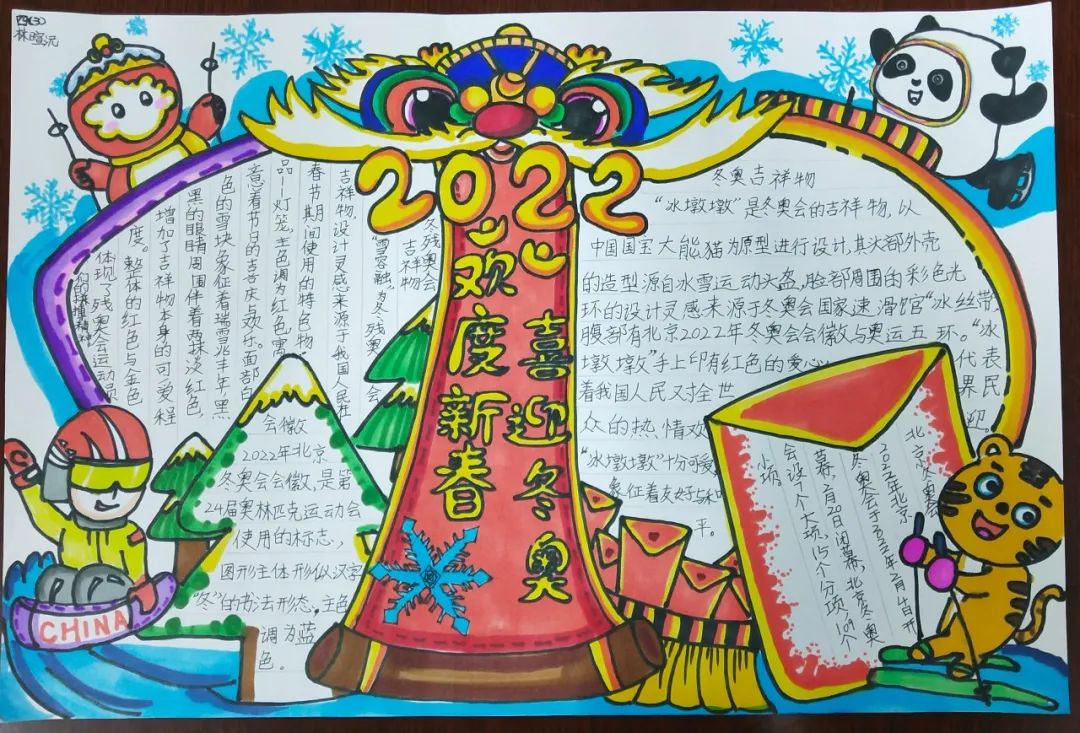 2022
欢度新春
喜迎冬奥
冬残奥会
吉祥物
“雪容融”,为冬残奥会
吉祥物,设计灵感来源于我国人民在
春节期间使用的特色物
品—灯笼,主色调为红色,寓
意着节日的吉庆与欢乐。面部白
色的雪块象征着瑞雪兆丰年,黑
黑的眼睛周围伴着两抹淡红色,
增加了吉祥物本身的可爱程
度。整体的红色与金色
体现了残奥会运动员
们的拼搏精神
会徽
2022年北京
冬奥会会徽,是第
24届奥林匹克运动会
使用的标志,
图形主体形似汉字
“冬”的书法形态,主色
调为蓝
色。
CHINA
冬奥吉祥物
“冰墩墩”是冬奥会的吉祥物,以
中国国宝大熊猫为原型进行设计,其头部外壳
的造型源自冰雪运动头盔,脸部周围的彩色光
环的设计灵感来源于冬奥会国家速滑馆“冰丝带”
腹部有北京2022年冬奥会会徽与奥运五环。“冰
墩墩”手上印有红色的爱心 代表
着我国人民对全世 界民
众的热情欢 迎。
“冰墩墩”十分可爱,
象征着友好与和
平。
北京冬奥会
2022年北京
冬奥会于2022年2月4日开
幕,2月20日闭幕,北京冬奥
会设7个大项,15个分项,109个
小项。